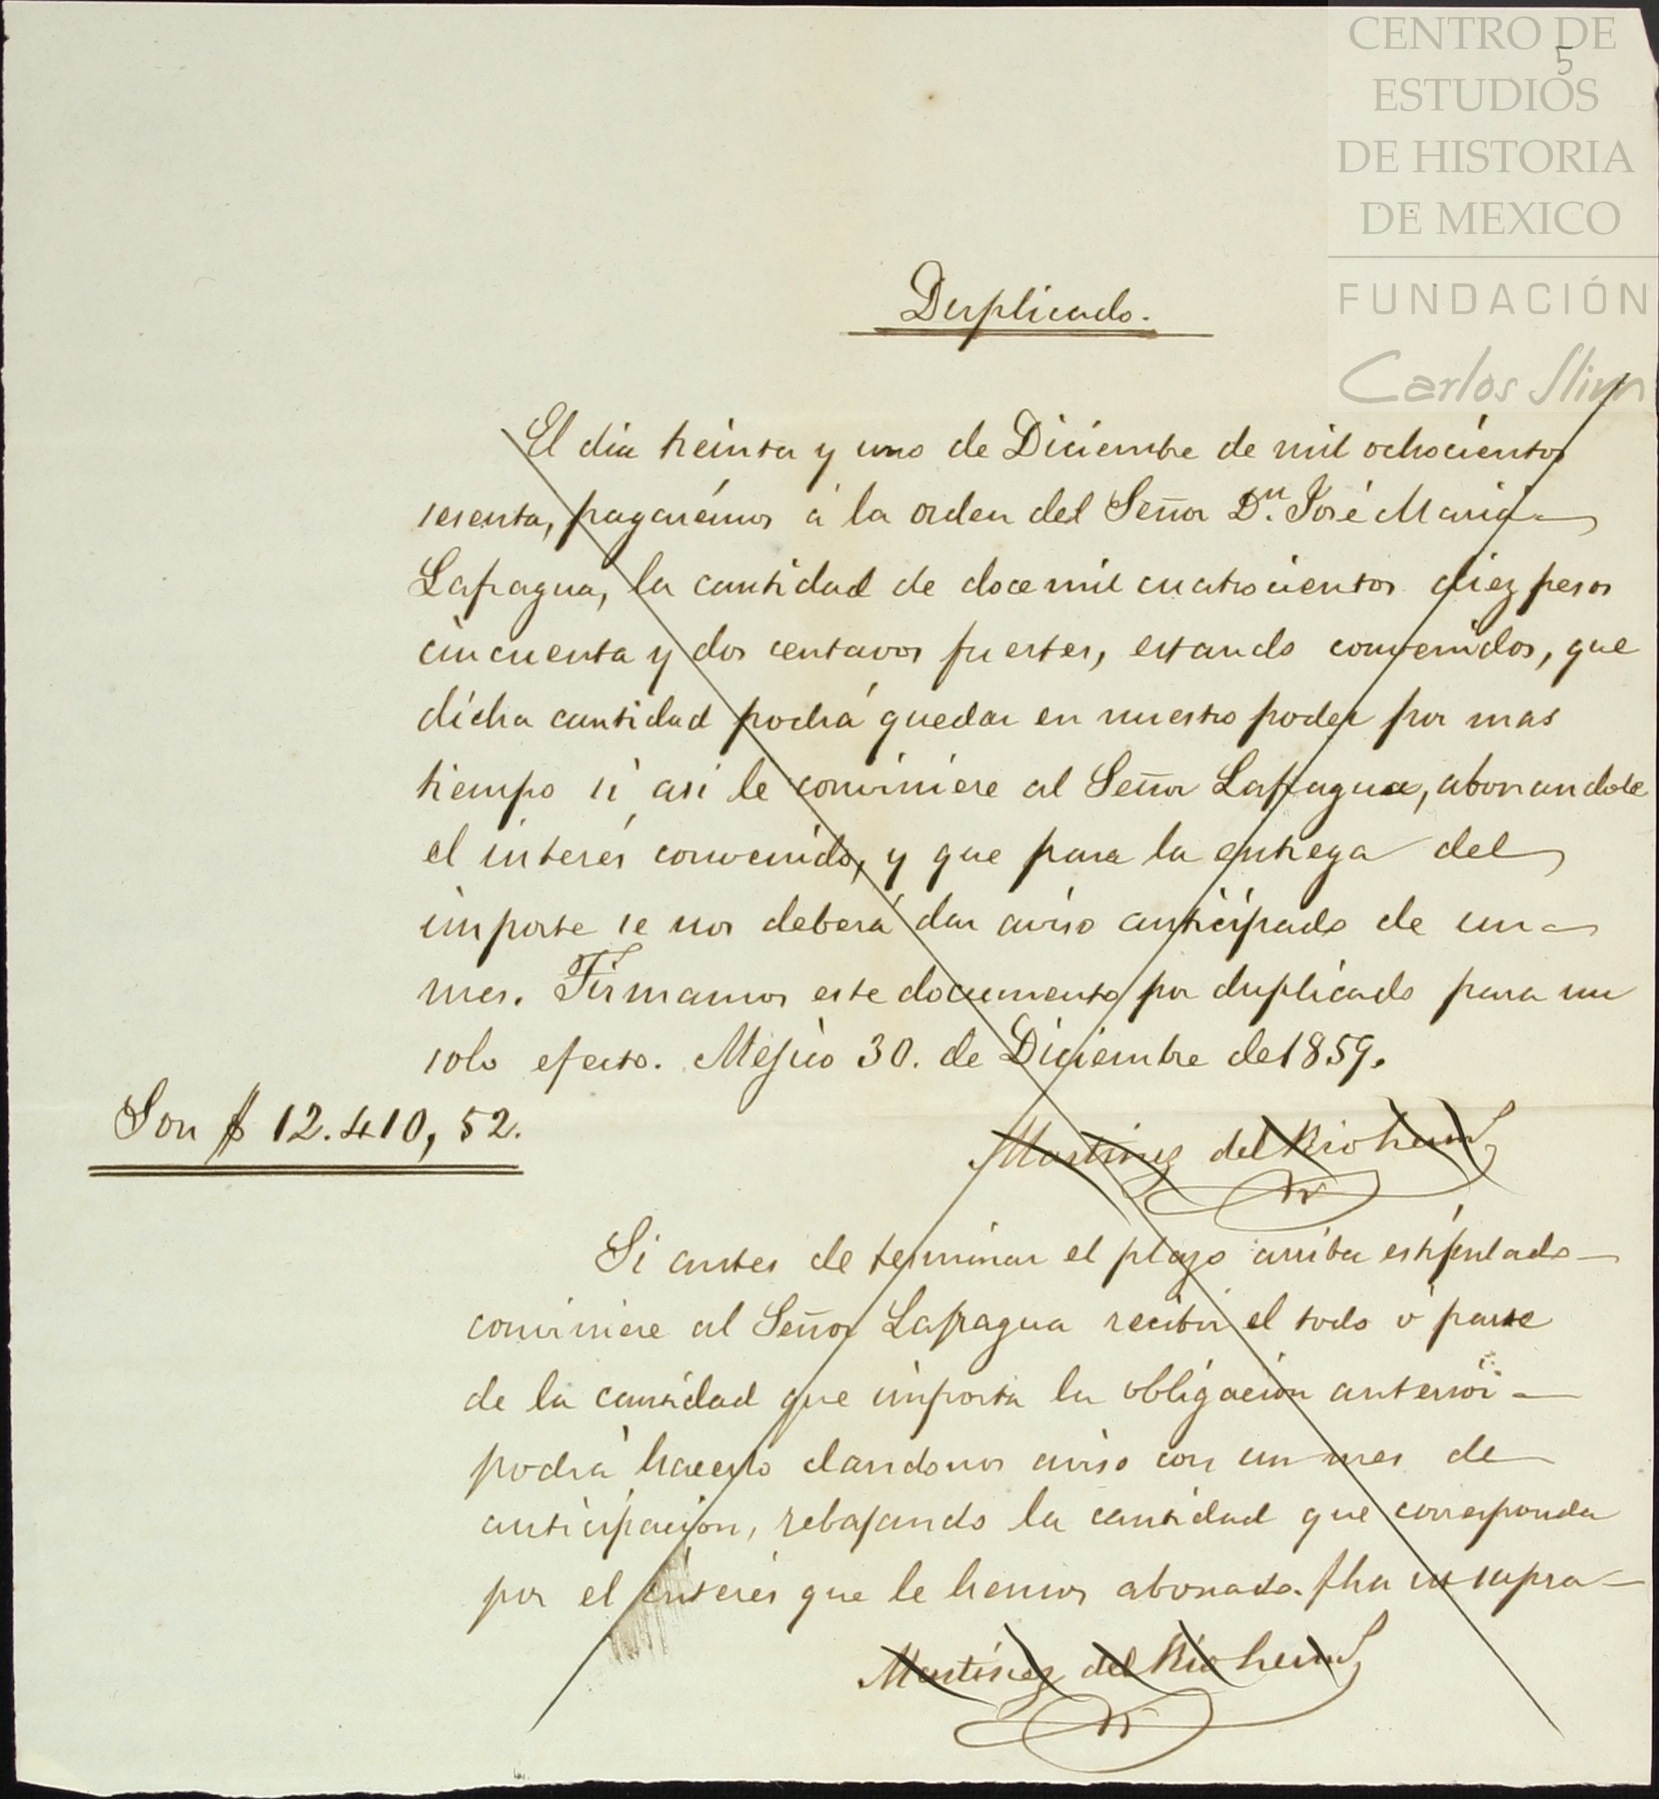 CENTRO DE
5
ESTUDIOS
DE HISTORIA
DE MEXICO
FUNDACIÓN
Carlos Slim
Duplicado.
El dia treinta y uno de Diciembre de mil ochocientos
sesenta, pagarémos á la orden del Señor Dn. José Maria
Lafragua, la cantidad de doce mil cuatrocientos diez pesos
cincuenta y dos centavos fuertes, estando convenidos, que
dicha cantidad podrá quedar en nuestro poder por mas
tiempo si asi le conviniere al Señor Lafragua, abonandole
el interés convenido, y que para la entrega del
importe se nos deberá dar aviso anticipado de un
mes. Firmamos este documento por duplicado para un
solo efecto. Mejico 30. de Diciembre de 1859.
Son $ 12.410,52.
Martinez del Rio herms
Si antes de terminar el plazo arriba estipulado
conviniere al Señor Lafragua recibir el todo ó parte
de la cantidad que importa la obligacion anterior
podrá hacerlo dandonos aviso con un mes de
anticipacion, rebajando la cantidad que corresponda
por el interés que le hemos abonado. fha ut supra
Martinez del Rio herms